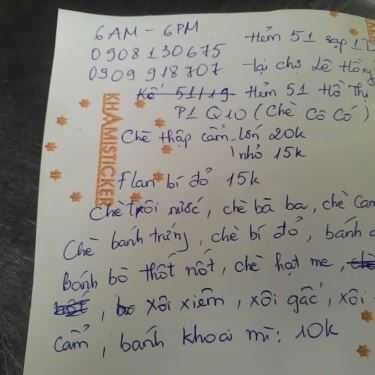 6AM - 6PM
0908130675
0909918707
Hẻm 51 sạp 1
tại chợ Lê Hồng
Kế 51/19 Hẻm 51 Hồ Thị
P1 Q10 (Chè Cô Có)
Chè thập cẩm lớn 20k
nhỏ 15k
Flan bí đỏ 15k
Chè trôi nước, chè bà ba, chè cam
Chè bánh trứng, chè bí đỏ, bánh
Bánh bò thốt nốt, chè hạt me,
, xôi xiêm, xôi gấc, xôi
Cẩm, bánh khoai mì: 10k
KHAMISTICKER